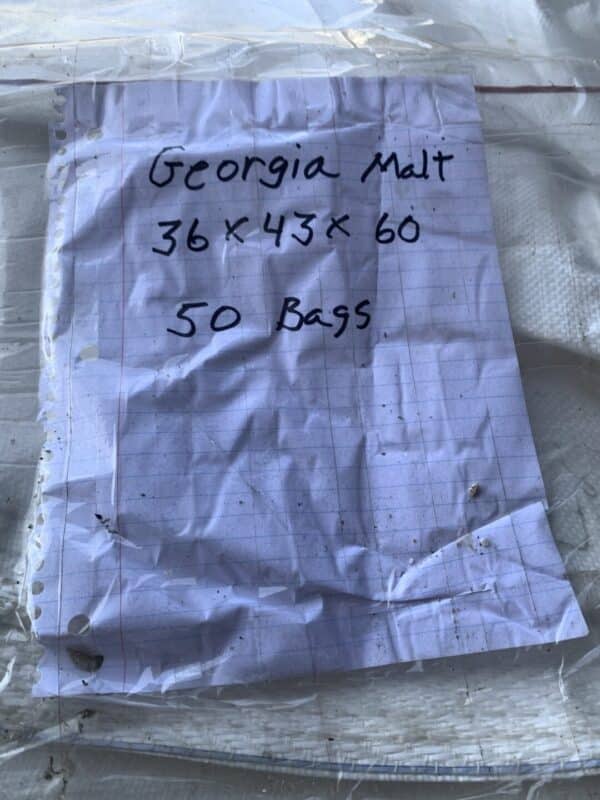 Georgia Malt
36 x 43 x 60
50 Bags